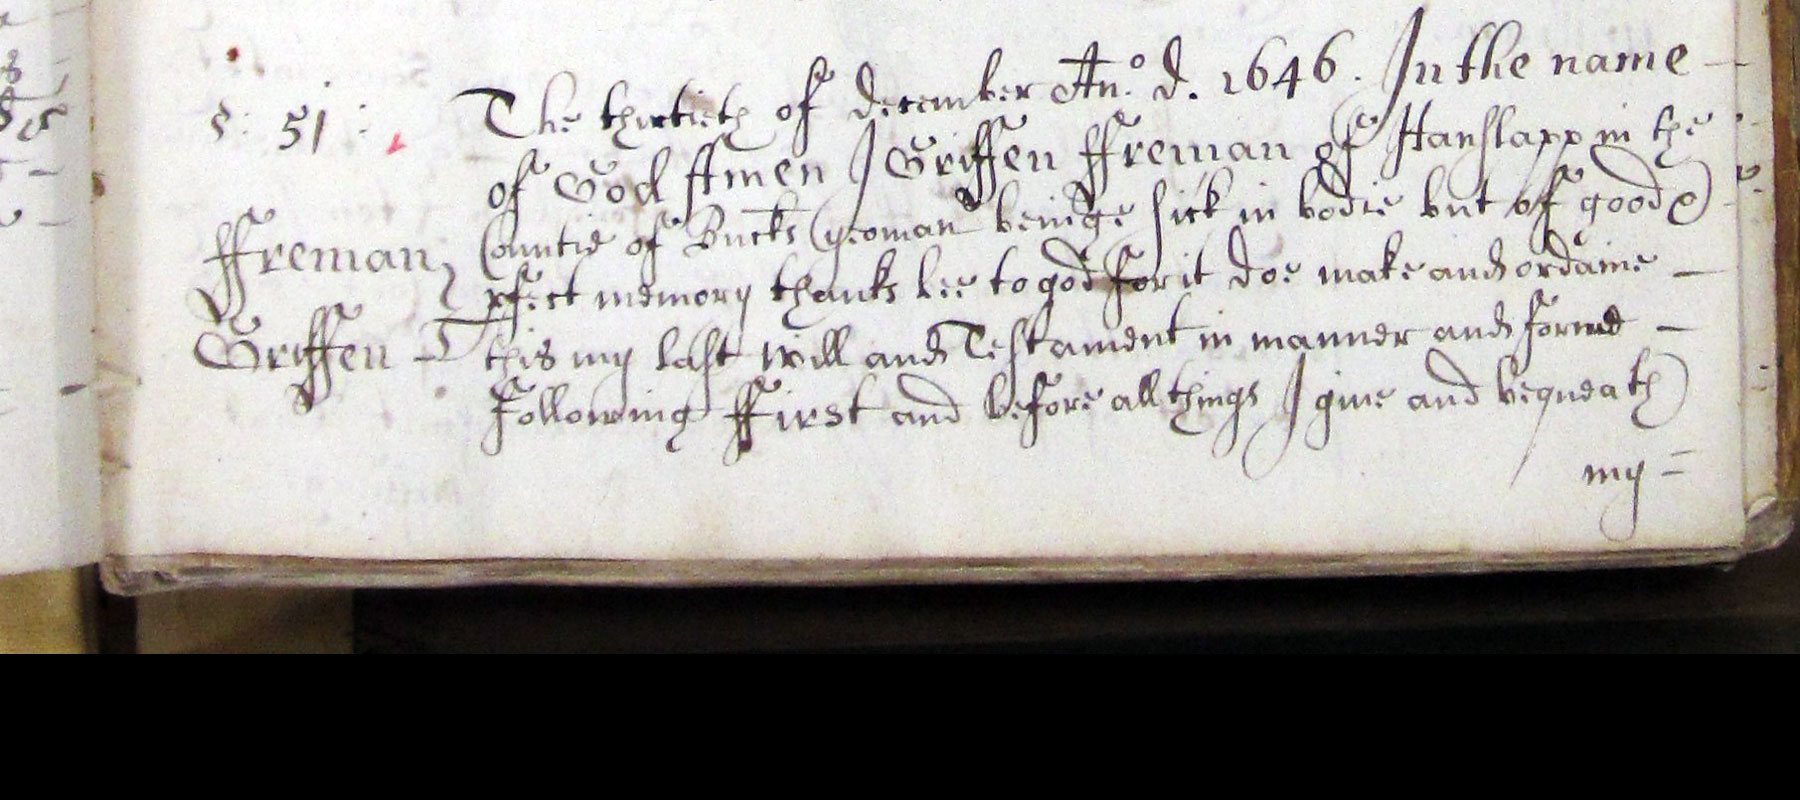 s: 51:
The thirtieth of december An.o d. 1646. In the name
of God Amen I Griffen ffreman of Hanslapp in the
Countie of Bucks (yeoman beinge sick in bodie but of good &
pfect memory thanks bee to god for it doe make and ordaine
this my last will and Testament in manner and forme
following ffirst and before all things I give and bequeath
my =
ffreman,
Griffen